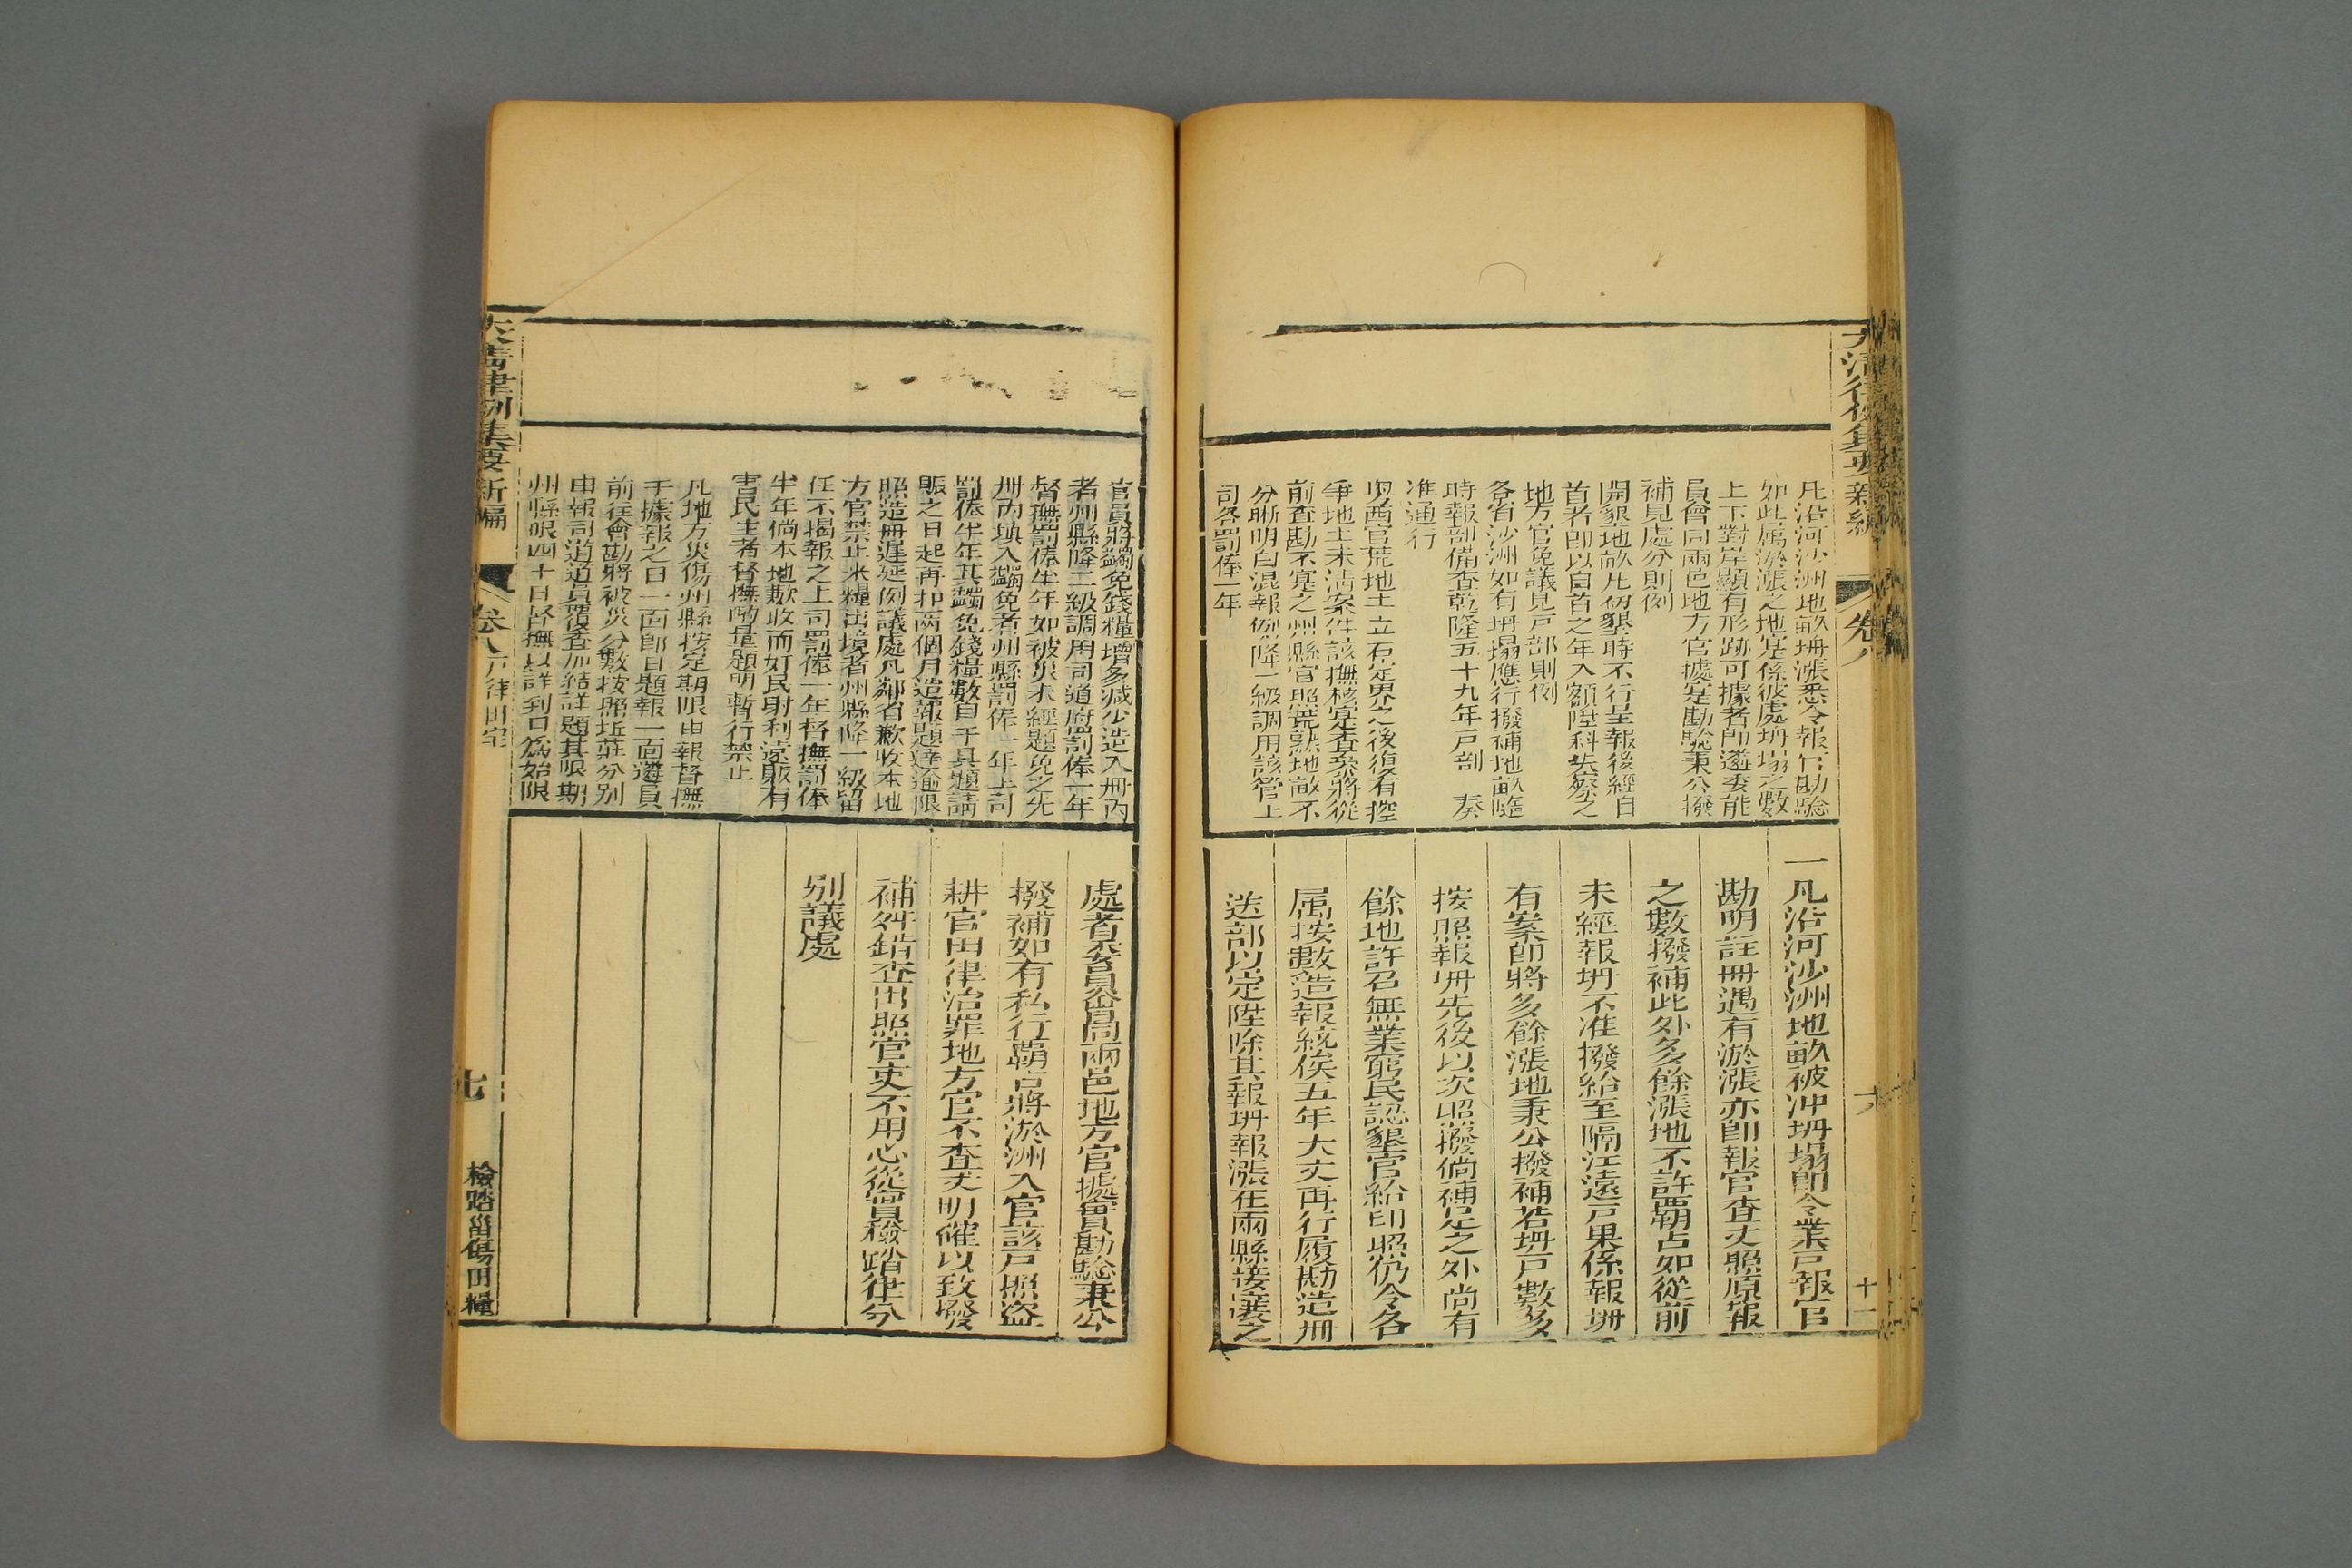 大清律例集要新編
卷八
凡沿河沙洲地畝坍漲悉令報官勘騐
如此属淤漲之地寔係彼處坍塌之數
上下對岸顯有形跡可據者即遴委能
員會同兩邑地方官據寔勘騐秉公撥
補見處分則例
開墾地畝凡初墾時不行呈報後經自
首者即以自首之年入額陞科失察之
地方官免議見戸部則例
各省沙洲如有坍塌應行撥補地畝隨
時報部備查乾隆五十九年戸部 奏
准通行
與酉官荒地土立石定界之後復有控
爭地土未清案件該撫核寔查叅將從
前查勘不寔之州縣官照荒熟地畝不
分晰明白混報例降一級調用該管上
司各罰俸一年
一凡沿河沙洲地畝被冲坍塌即令業戸報官
勘明註冊遇有淤漲亦即報官查丈照原報
之數撥補此外多餘漲地不許覇占如從前
未經報坍不准撥給至隔江遠戸果係報坍
有案即將多餘漲地秉公撥補若坍戸數多
按照報坍先後以次照撥倘補足之外尚有
餘地許召無業窮民認墾官給印照仍令各
属按數造報統俟五年大丈再行履勘造冊
送部以定陞除其報坍報漲在兩縣接壤之
官員將蠲免錢糧增多减少造入冊內
者州縣降二級調用司道府罰俸一年
督撫罰俸半年如被災未經題免之先
冊內填入蠲免者州縣罰俸一年上司
罰俸半年其蠲免錢糧數目于具題請
賑之日起再扣兩個月造報題達逾限
照造冊遲延例議處凡鄰省歉收本地
方官禁止米糧出境者州縣降一級留
任不揭報之上司罰俸一年督撫罰俸
半年倘本地歉收而奸民射利遠販有
害民生者督撫酌量題明暫行禁止
凡地方災傷州縣按定期限申報督撫
于據報之日一面即日題報一面遴員
前往會勘將被災分數按照坵莊分別
申報司道道員覆查加結詳題其限期
州縣限四十日督撫以詳到日為始限
處者委員會同兩邑地方官據實勘騐秉公
撥補如有私行覇占將淤洲入官該戸照盗
耕官田律治罪地方官不查丈明確以致發
補舛錯查出照官吏不用心從實檢踏律分
別議處
大清律例集要新編
卷八戸律田宅
七
檢踏菑傷田糧